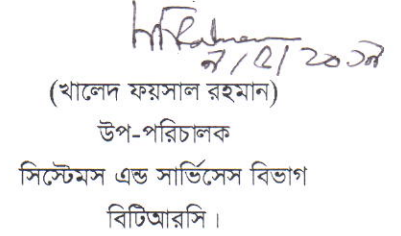 (খালেদ ফয়সাল রহমান)
উপ-পরিচালক
সিস্টেমস এন্ড সার্ভিসেস বিভাগ
বিটিআরসি।